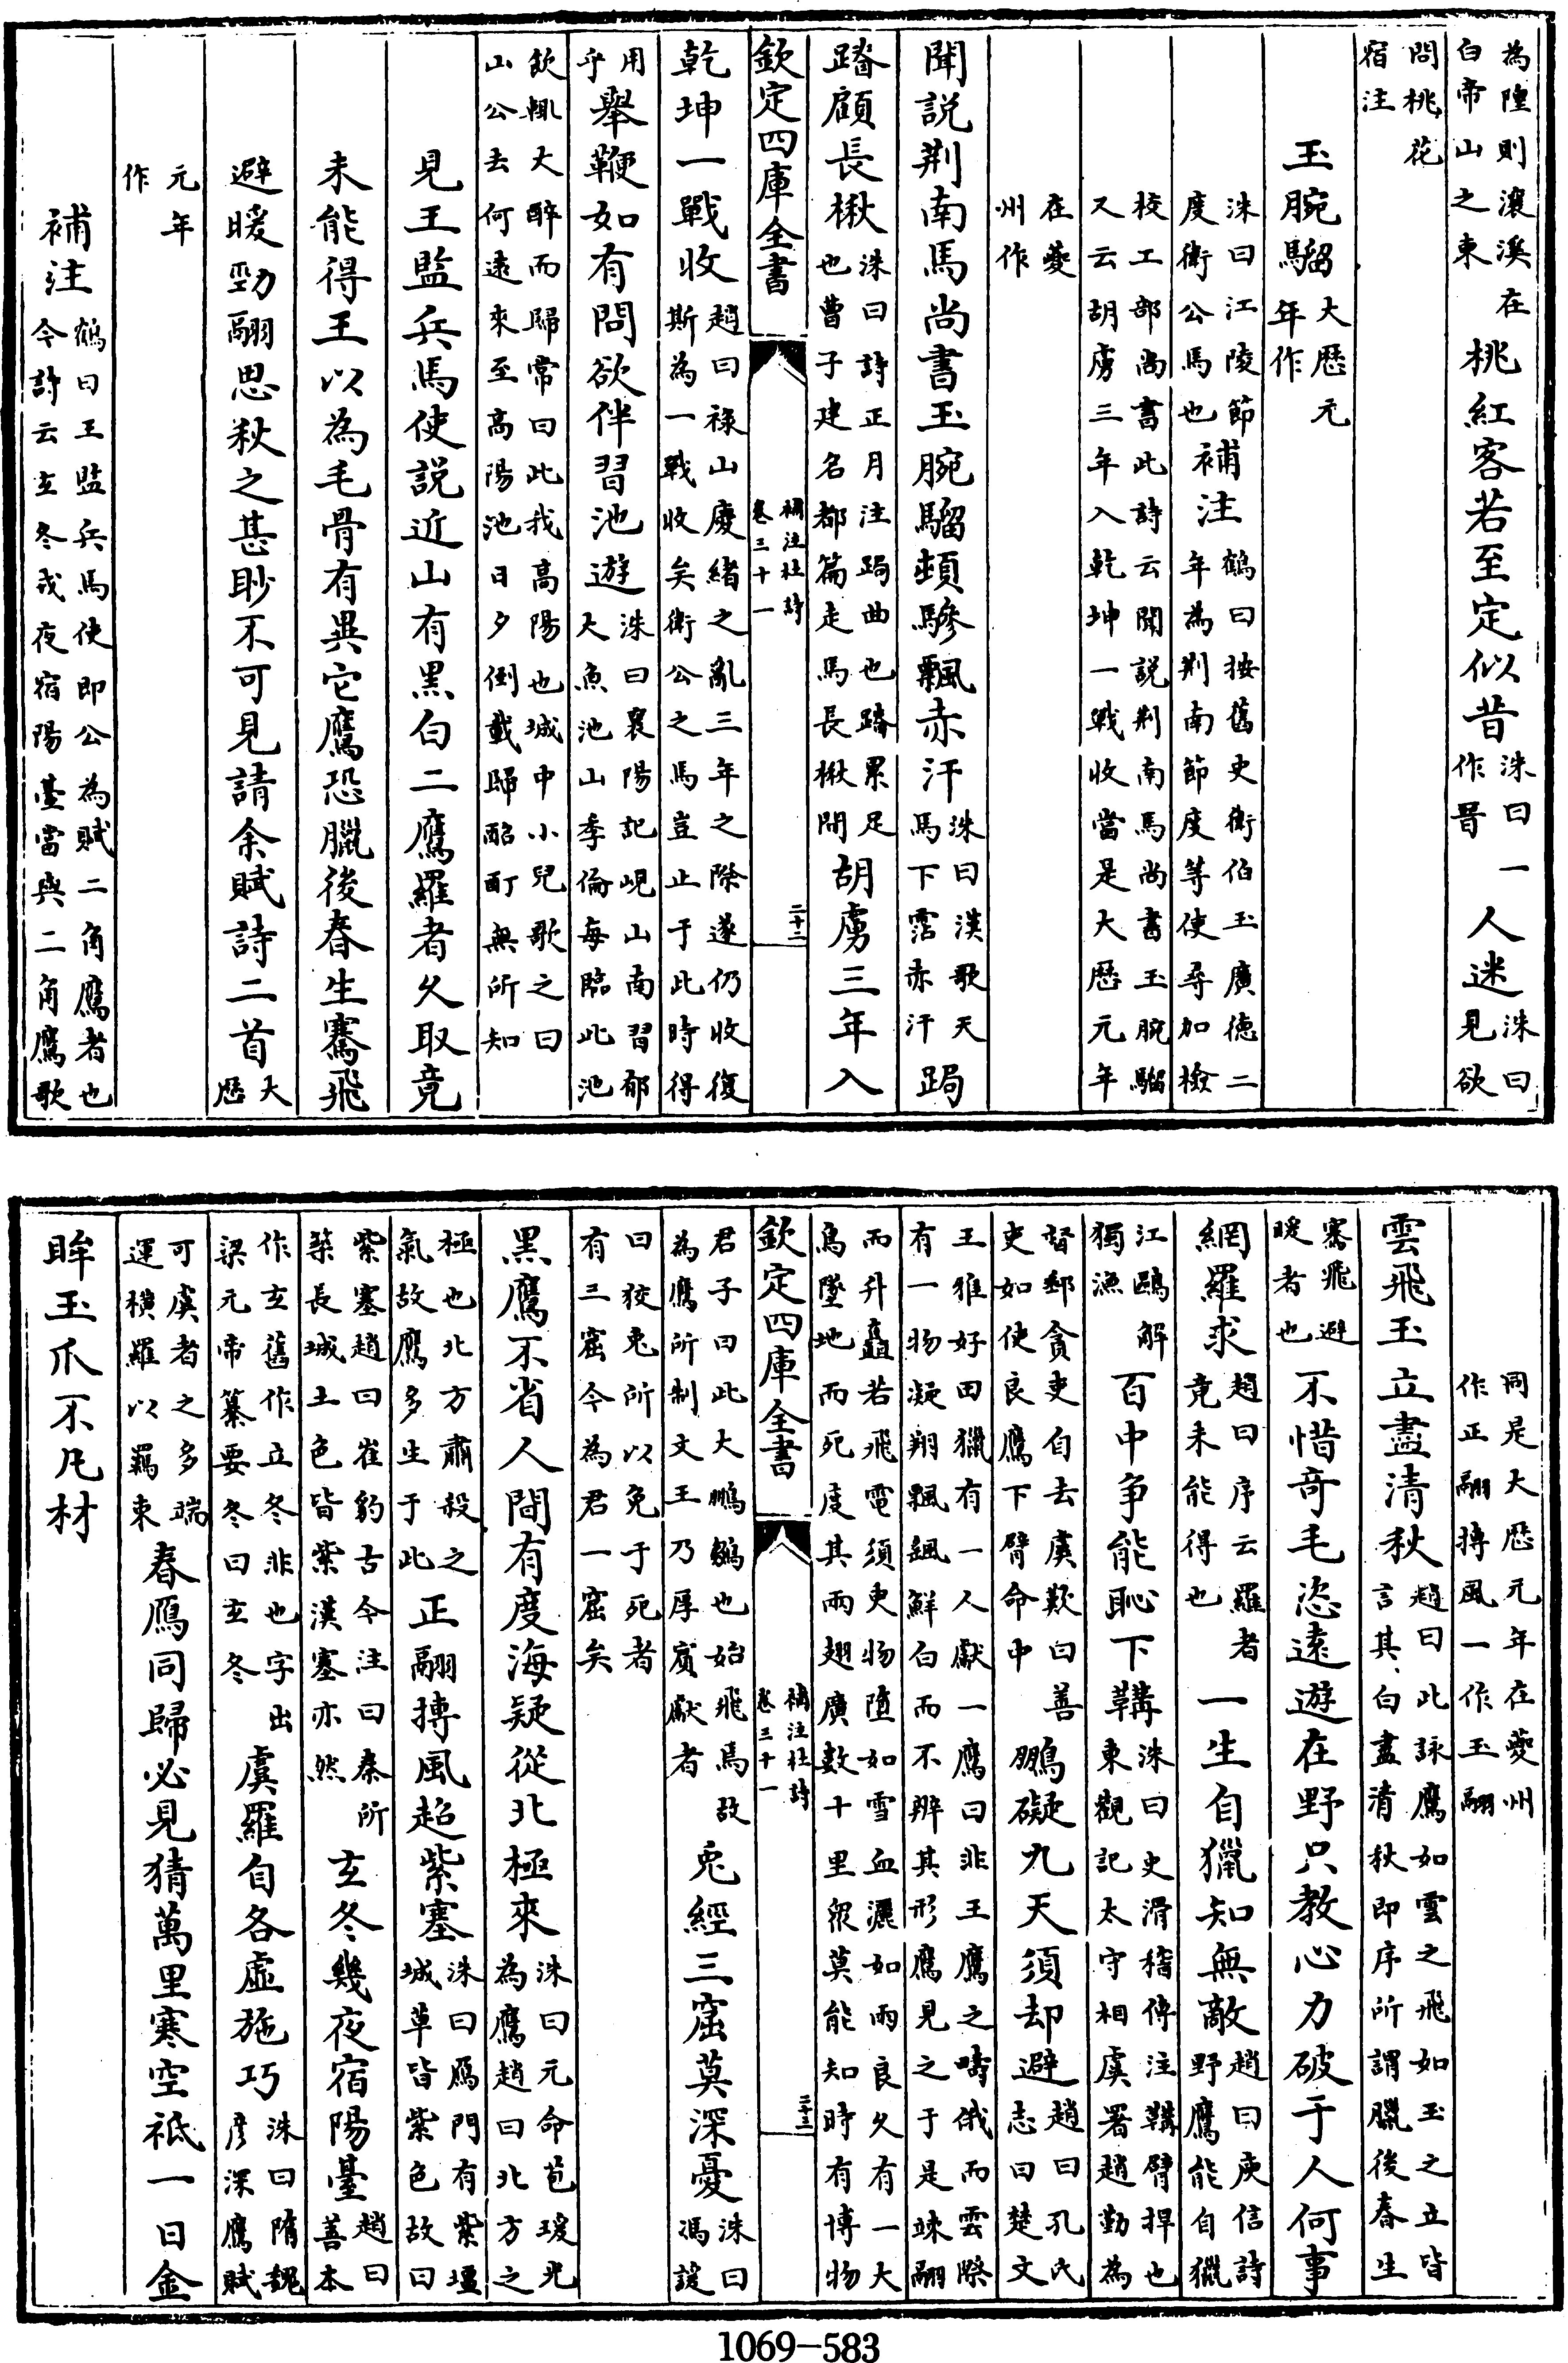 為隍則瀼溪在白帝山之東桃紅客若至定似昔洙曰一作晉人迷洙曰見欲
問桃花宿注
玉腕騮大厯元年作
洙曰江陵節度衛公馬也補注鶴曰按舊史衛伯玉廣德二年為荆南節度等使尋加檢
校工部尚書此詩云聞説荆南馬尚書玉腕騮又云胡虜三年入乾坤一戰收當是大厯元年
在夔州作
聞説荆南馬尚書玉腕騮頓驂飄赤汗洙曰漢歌天馬下霑赤汗跼
蹐顧長楸洙曰詩正月注跼曲也蹐累足也曹子建名都篇走馬長楸間胡虜三年入
欽定四庫全書 補注杜詩卷三十一 二十二
乾坤一戰收趙曰祿山慶緒之亂三年之際遂仍收復斯為一戰收矣衛公之馬豈止于此時得
用乎舉鞭如有問欲伴習池遊洙曰襄陽記峴山南習郁大魚池山季倫每臨此池
飲輒大醉而歸常曰此我高陽也城中小兒歌之曰山公去何遠來至高陽池日夕倒載歸酩酊無所知
見王監兵馬使説近山有黑白二鷹羅者久取竟
未能得王以為毛骨有異它鷹恐臘後春生騫飛
避暖勁翮思秋之甚眇不可見請余賦詩二首大厯
元年作
補注鶴曰王監兵馬使即公為賦二角鷹者也今詩云玄冬戎夜宿陽臺當與二角鷹歌
同是大厯元年在夔州作正翮摶風一作玉翮
雲飛玉立盡清秋趙曰此詠鷹如雲之飛如玉之立皆言其白盡清秋即序所謂臘後春生
騫飛避暖者也不惜奇毛恣遠遊在野只教心力破于人何事
網羅求趙曰序云羅者竟未能得也一生自獵知無敵趙曰庾信詩野鷹能自獵
江鷗解獨漁百中争能恥下韝洙曰史滑稽傳注韝臂捍也東觀記太守相虞署趙勤為
督郵貪吏自去虞歎曰善吏如使良鷹下臂命中鵬礙九天須却避趙曰孔氏志曰楚文
王雅好田獵有一人獻一鷹曰非王鷹之儔俄而雲際有一物凝翔飄颻鮮白而不辨其形鷹見之于是竦翮
而升矗若飛電須臾物墮如雪血灑如雨良久有一大鳥墜地而死度其兩翅廣數十里衆莫能知時有博物
欽定四庫全書 補注杜詩卷三十一 二十三
君子曰此大鵬雛也始飛焉故為鷹所制文王乃厚賔獻者兎經三窟莫深憂洙曰馮諼
曰狡兎所以免于死者有三窟今為君一窟矣
黑鷹不省人間有度海疑從北極來洙曰元命苞瑗光為鷹趙曰北方之
極也北方肅殺之氣故鷹多生于此正翮摶風超紫塞洙曰鴈門有紫壃城草皆紫色故曰
紫塞趙曰崔豹古今注曰秦所築長城土色皆紫漢塞亦然玄冬幾夜宿陽臺趙曰善本
作玄舊作立冬非也字出梁元帝纂要冬曰玄冬虞羅自各虚施巧洙曰隋魏彦深鷹賦
可虞者之多端運横羅以羈束春鴈同歸必見猜萬里寒空祗一日金
眸玉爪不凡材
1069-583